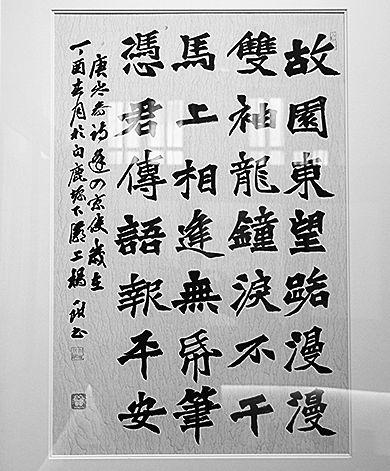 故園東望路漫漫
雙袖龍鐘淚不干
馬上相逢無帋筆
憑君傳語報平安
唐岑參詩逢入京使歲在
丁酉春月於白鹿下書